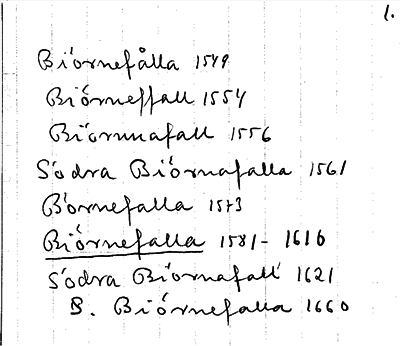 1.
Biörnefålla 1549
Biörneffall 1554
Biörnnafall 1556
Södra Biörnafalla 1561
Börnefalla 1573
Biörnefalla 1581-1616
Södra Biörnafall 1621
S. Biörnefalla 1660